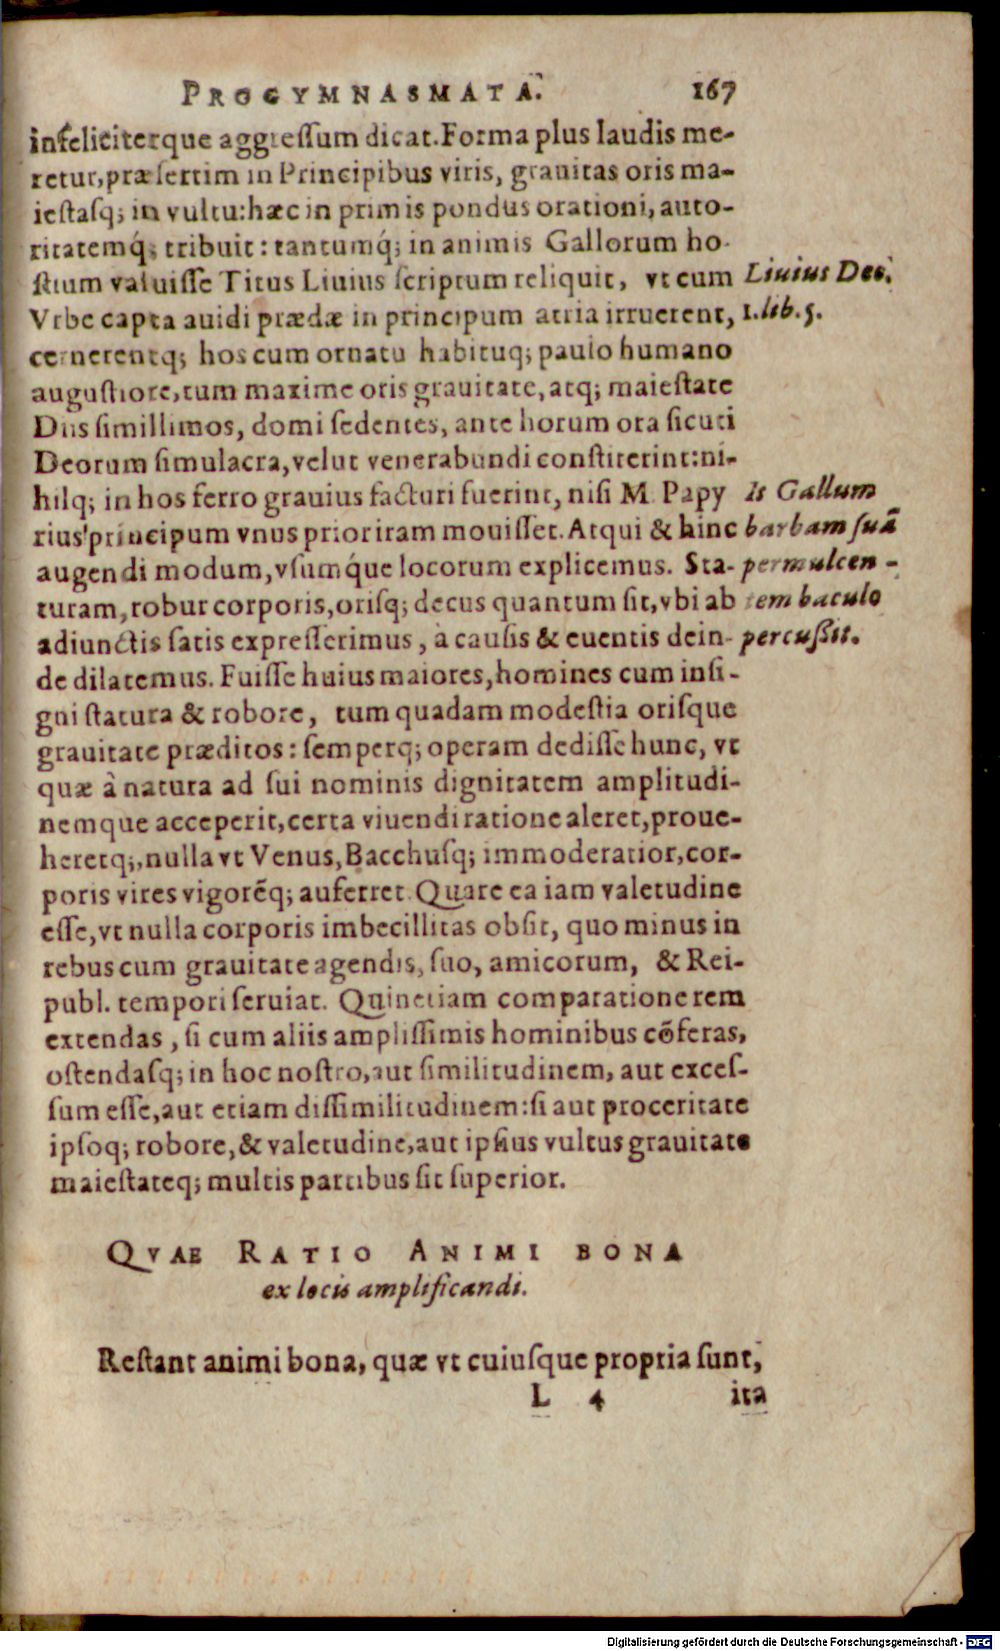 PROGYMNASMATA. 167
infeliciterque aggressum dicat. Forma plus laudis me-
retur, præsertim in Principibus viris, grauitas oris ma-
iestasq; in vultu: hæc in primis pondus orationi, auto-
ritatemq́; tribuit: tantumq́; in animis Gallorum ho-
stium valuisse Titus Liuius scriptum reliquit, vt cum
Vrbe capta auidi prædæ in principum atria irruerent,
cernerentq; hos cum ornatu habituq; paulo humano
augustiore, tum maxime oris grauitate, atq; maiestate
Diis simillimos, domi sedentes, ante horum ora sicuti
Deorum simulacra, velut venerabundi constiterint: ni-
hilq; in hos ferro grauius facturi fuerint, nisi M. Papy
rius principum vnus prior iram mouisset. Atqui & hinc
augendi modum, vsumq́ue locorum explicemus. Sta-
turam, robur corporis, orisq; decus quantum sit, vbi ab
adiunctis satis expresserimus, à causis & euentis dein-
de dilatemus. Fuisse huius maiores, homines cum insi-
gni statura & robore, tum quadam modestia orisque
grauitate præditos: semperq; operam dedisse hunc, vt
quæ à natura ad sui nominis dignitatem amplitudi-
nemque acceperit, certa viuendi ratione aleret, proue-
heretq;, nulla vt Venus, Bacchusq; immoderatior, cor-
poris vires vigorẽq; auferret. Quare ea iam valetudine
esse, vt nulla corporis imbecillitas obsit, quo minus in
rebus cum grauitate agendis, suo, amicorum, & Rei-
publ. tempori seruiat. Quinetiam comparatione rem
extendas, si cum aliis amplissimis hominibus cõferas,
ostendasq; in hoc nostro, aut similitudinem, aut exces-
sum esse, aut etiam dissimilitudinem: si aut proceritate
ipsoq; robore, & valetudine, aut ipsius vultus grauitate
maiestateq; multis partibus sit superior.
Liuius Dec.
1. lib. 5.
Is Gallum
barbam suã
permulcen-
tem baculo
percussit.
QVAE RATIO ANIMI BONA
ex locis amplificandi.
Restant animi bona, quæ vt cuiusque propria sunt,
L 4 ita
Digitalisierung gefördert durch die Deutsche Forschungsgemeinschaft - DFG